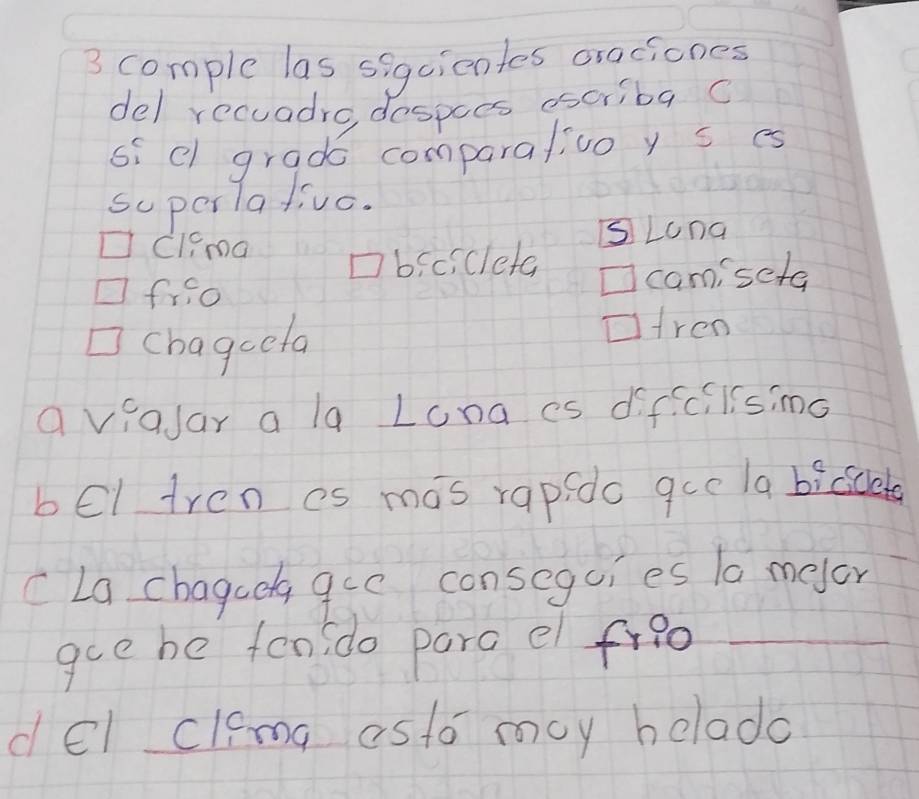 3 comple las sigcientes oraciones
del recuadro, despces escriba C
si el grado comparativo y s es
superlativo.
□ clima □ bicicleta [S] Luna
□ frio □ camiseta
□ chagceta □ tren
a viajar a la Luna es dificilisimo
b El tren es más rapido gce la bicicleta
C La chagceta gce consegui es la mejor
gce he tenido para el frio ____
d El clima està mcy helado